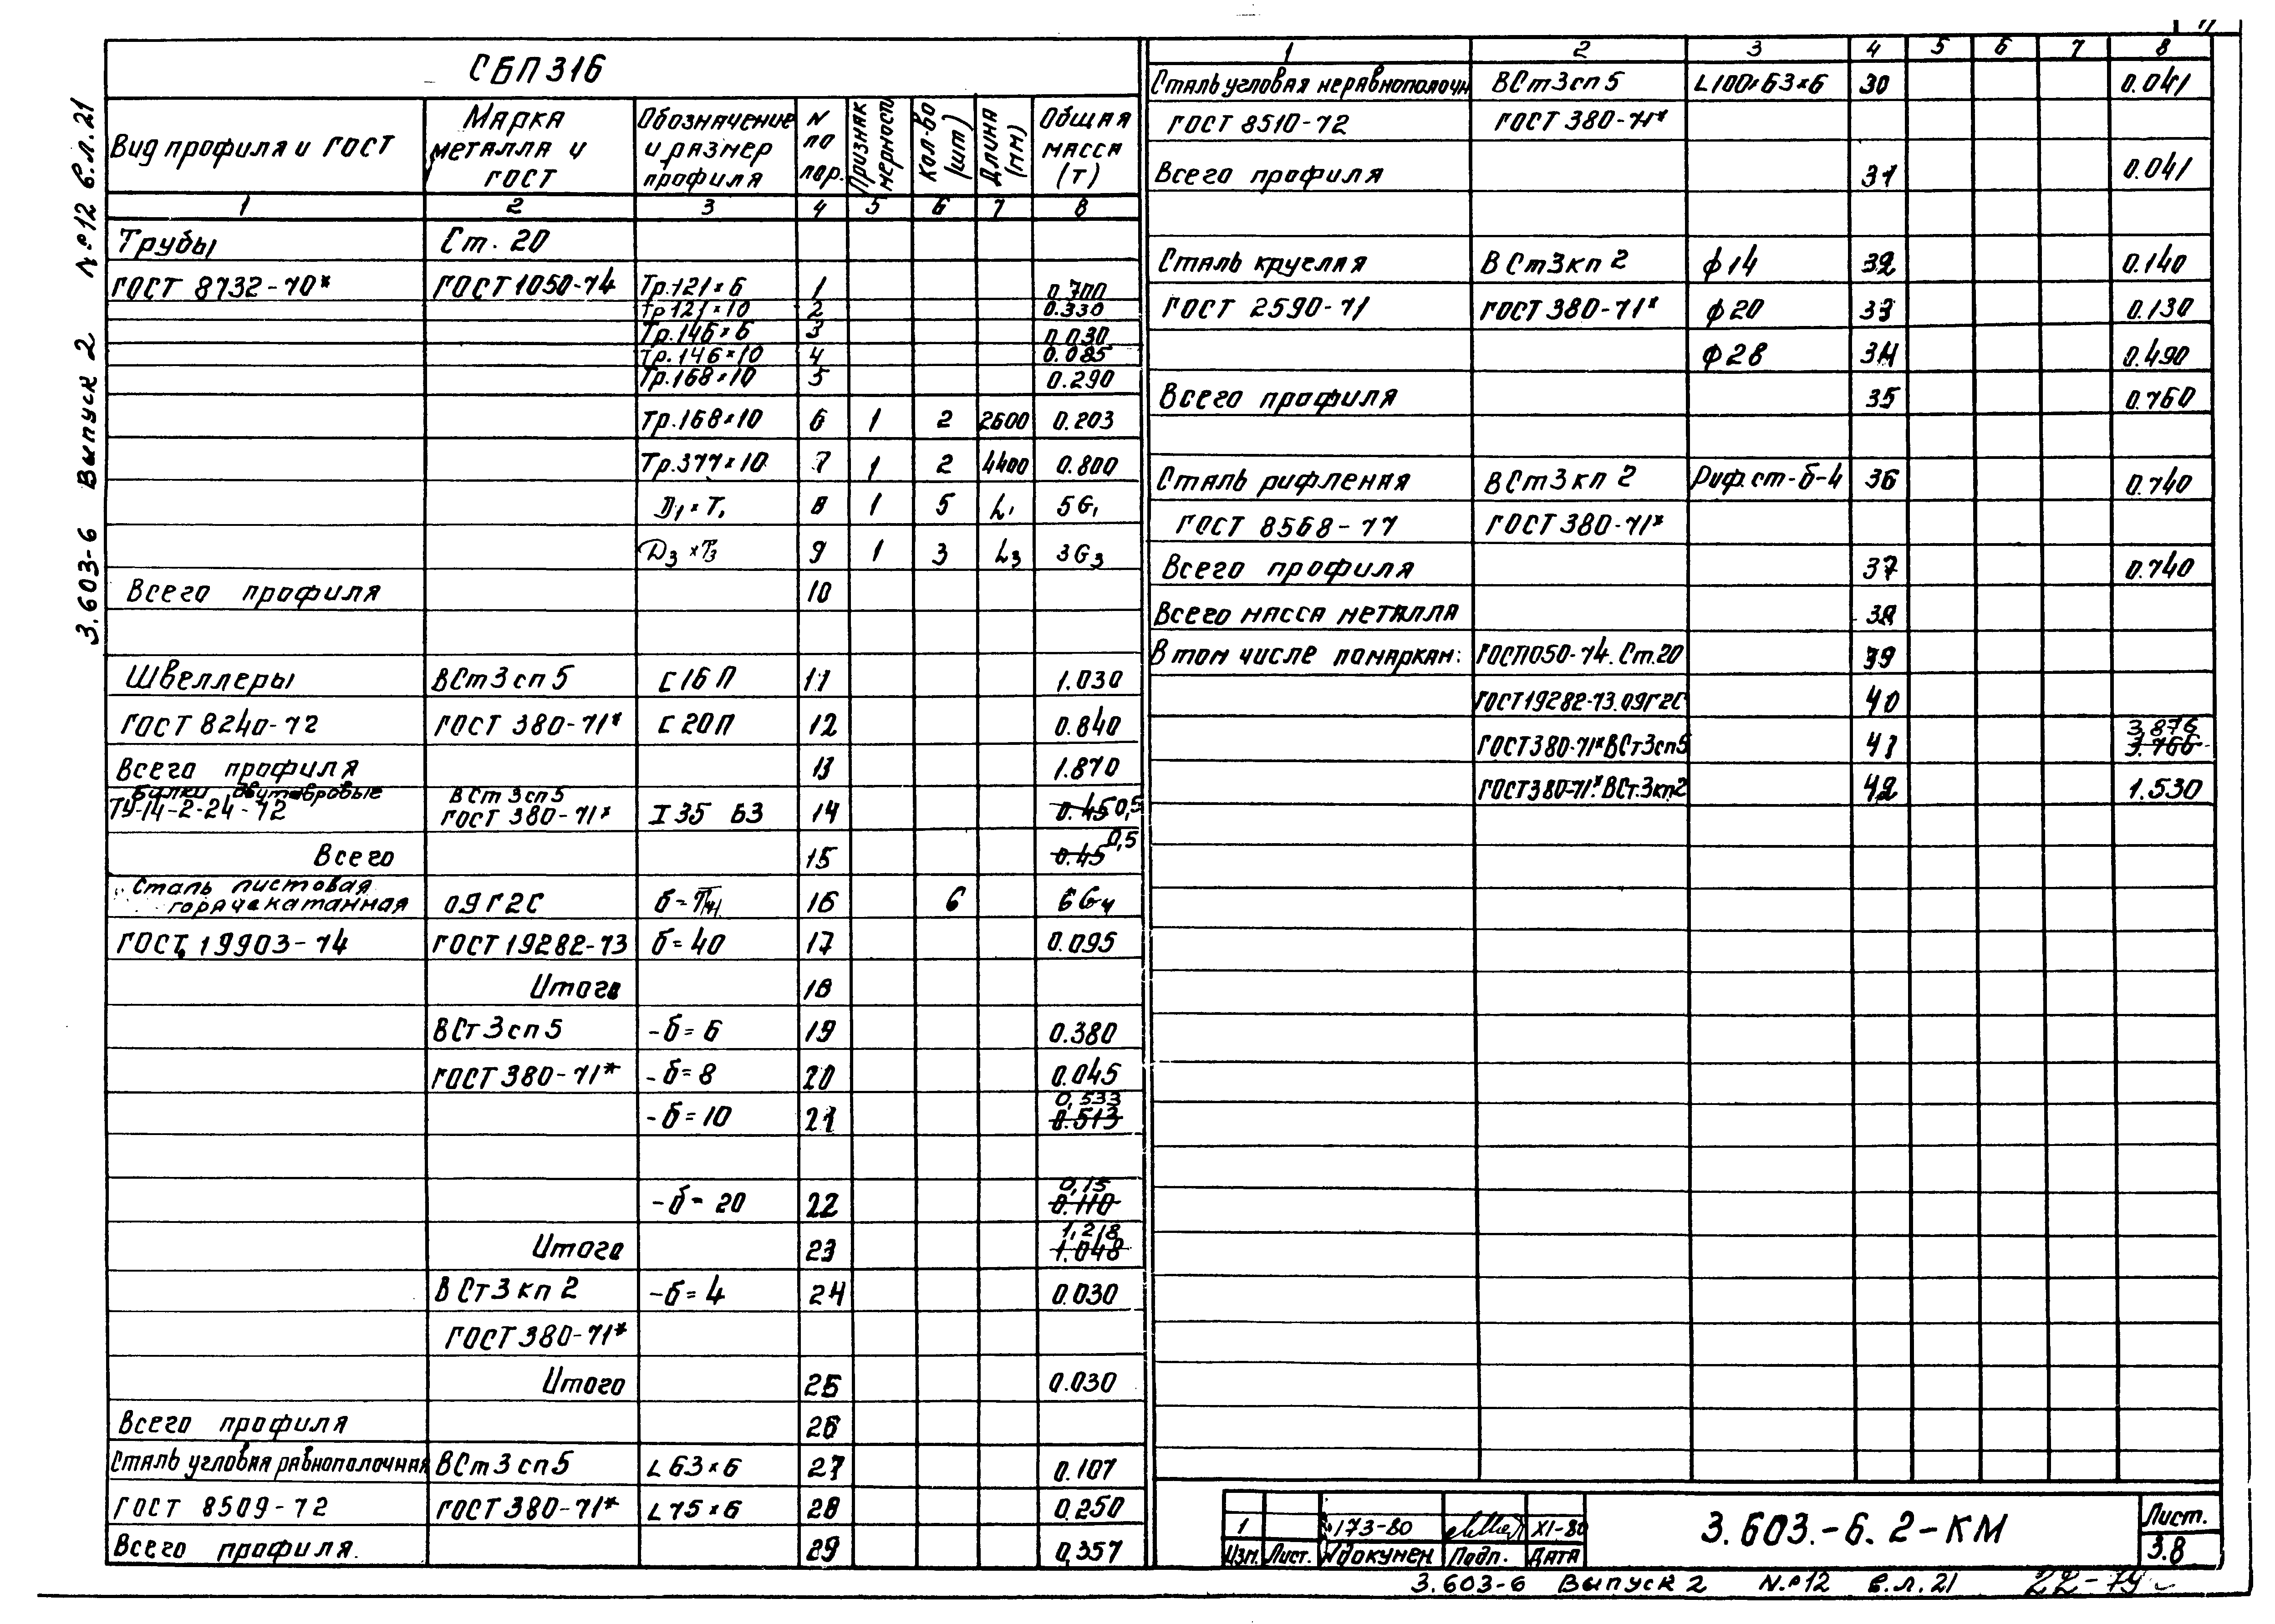 СБП 316
Вид профиля и ГОСТ | Марка металла и ГОСТ | Обозначение и размер профиля | N по пор. | Признак мерности | Кол-во (шт) | Длина (мм) | Общая масса (т)
1 2 3 4 5 6 7 8
Трубы Ст. 20
ГОСТ 8732-70* ГОСТ 1050-74 Тр.121×6 1 0.700
Тр 121×10 2 0.330
Тр.146×6 3 0.030
Тр.146×10 4 0.085
Тр.168×10 5 0.290
Тр.168×10 6 1 2 2600 0.203
Тр.377×10 7 1 2 4400 0.800
D1×T1 8 1 5 L1 5G1
D3×T3 9 1 3 L3 3G3
Всего профиля 10
Швеллеры ВСт3сп5 С16П 11 1.030
ГОСТ 8240-72 ГОСТ 380-71* С20П 12 0.840
Всего профиля 13 1.870
Балки двутавровые ВСт3сп5
ТУ-14-2-24-72 ГОСТ 380-71* I 35 Б3 14 0.45 0,5
0,5
Всего 15 0.45
Сталь листовая
горячекатанная 09Г2С б= 16 6 6G4
ГОСТ 19903-74 ГОСТ 19282-73 б=40 17 0.095
Итого 18
ВСт3сп5 -б=6 19 0.380
ГОСТ 380-71* -б=8 20 0.045
0,533
-б=10 21 0.513
0,15
-б=20 22 0.110
1,218
Итого 23 1.048
ВСт3кп2 -б=4 24 0.030
ГОСТ 380-71*
Итого 25 0.030
Всего профиля 26
Сталь угловая равнополочная ВСт3сп5 L63×6 27 0.107
ГОСТ 8509-72 ГОСТ 380-71* L75×6 28 0.250
Всего профиля. 29 0,357
1 2 3 4 5 6 7 8
Сталь угловая неравнополочн ВСт3сп5 L100×63×6 30 0.041
ГОСТ 8510-72 ГОСТ 380-71*
Всего профиля 31 0.041
Сталь круглая ВСт3кп2 ф14 32 0.140
ГОСТ 2590-71 ГОСТ 380-71* ф20 33 0.130
ф28 34 0.490
Всего профиля 35 0.760
Сталь рифленая ВСт3кп2 Риф.ст-б-4 36 0.740
ГОСТ 8568-77 ГОСТ 380-71*
Всего профиля 37 0.740
Всего масса металла 38
В том числе по маркам: ГОСТ1050-74. Ст.20 39
ГОСТ19282-73.09Г2С 40
3,876
ГОСТ380-71* ВСт3сп5 41 3.766
ГОСТ380-71* ВСт.3кп2 42 1.530
1 173-80 XI-80
Изм. Лист. Nдокумен Подп. Дата
3.603.-6.2-КМ
Лист.
3.8
3.603-6 Выпуск 2 N.º12 в.л.21
3.603-6 Выпуск 2 N.º12 в.л.21